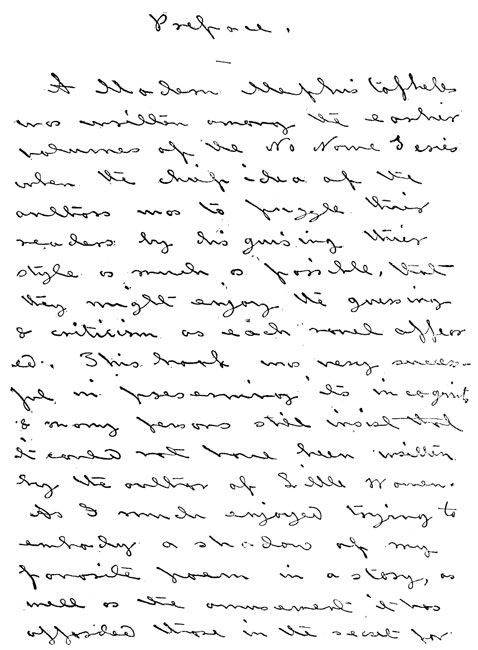 Preface.
A Modern Mephistopheles
was written among the earlier
volumes of the No Name Series
when the chief idea of the
authors was to puzzle their
readers by disguising their
style as much as possible, that
they might enjoy the guessing
& criticism as each novel appear
ed. This book was very success-
ful in preserving its incognito
& many persons still insist that
it could not have been written
by the author of Little Women.
As I much enjoyed trying to
embody a shadow of my
favorite poem in a story, as
well as the amusement it has
afforded those in the secret for